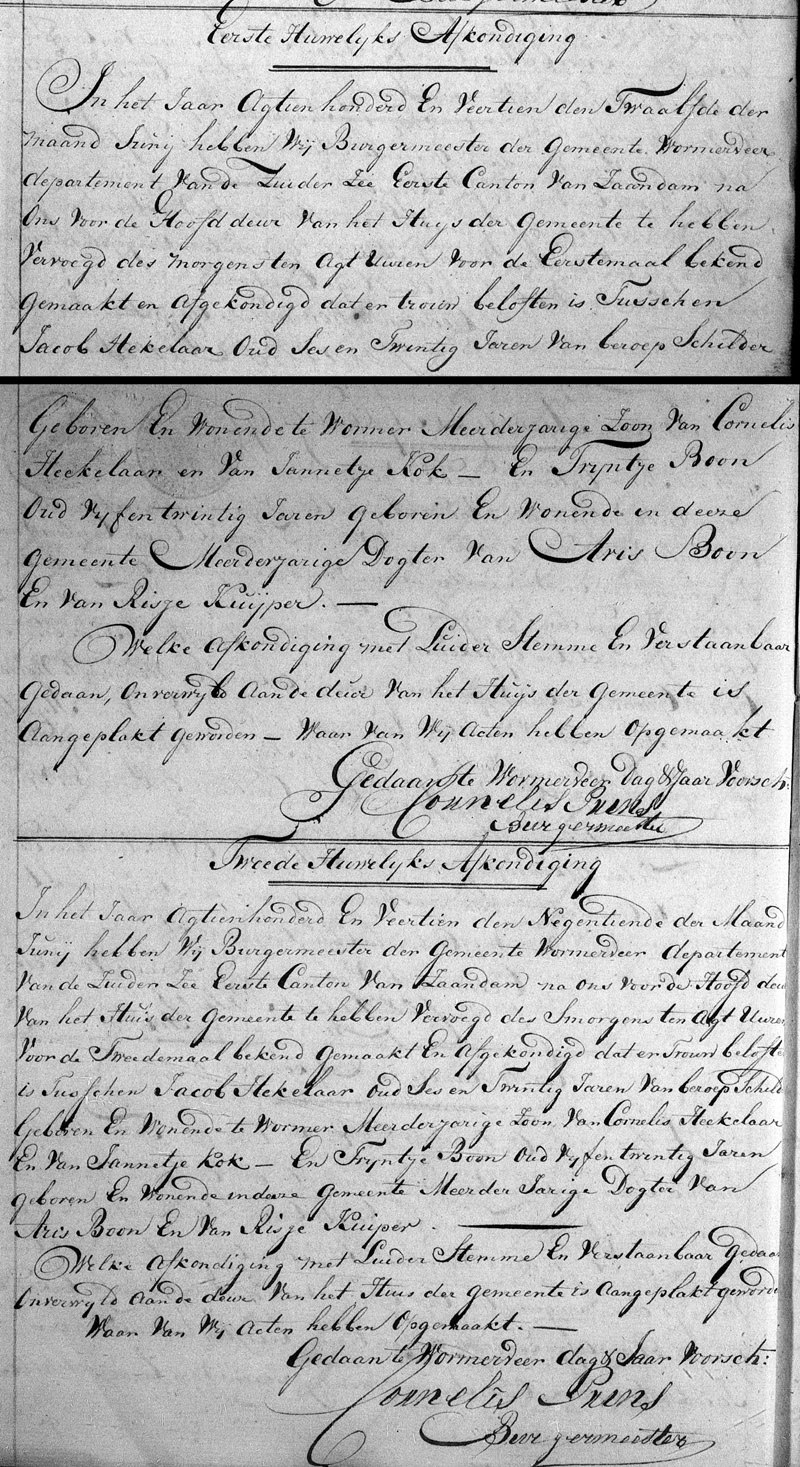 Eerste Huwelyks Afkondiging
In het Jaar Agtien honderd En Veertien den Twaalfde der
maand Junij hebben Wij Burgermeester der Gemeente Wormerveer
departement Van de Zuider Zee Eerste Canton Van Zaandam na
Ons Voor de Hoofd deur Van het Huys der Gemeente te hebben
Vervoegd des morgens ten Agt Uuren Voor de Eerstemaal bekend
Gemaakt en Afgekondigd dat er trouw beloften is Tusschen
Jacob Hekelaar Oud Ses en Twintig Jaren Van beroep Schilder
Geboren En Wonende te Wormer Meerderjarige Zoon Van Cornelis
Heekelaar en Van Jannetje Kok — En Tryntje Boon
Oud Vyfentwintig Jaren geboren En Wonende in deeze
Gemeente Meerderjarige Dogter Van Aris Boon
En Van Risje Kuijper. —
Welke Afkondiging met Luider Stemme En Verstaanbaar
Gedaan, Onverwyld Aan de deur Van het Huijs der Gemeente is
Aangeplakt geworden — Waar Van Wij Acten hebben Opgemaakt
Gedaan te Wormerveer dag & Jaar Voorsch:
Cornelis Prins
Burgermeester
Tweede Huwelyks Afkondiging
In het Jaar Agtienhonderd En Veertien den Negentiende der Maand
Junij hebben Wij Burgermeester der Gemeente Wormerveer departement
Van de Zuider Zee Eerste Canton Van Zaandam na ons Voor de Hoofd deur
Van het Huis der Gemeente te hebben Vervoegd des Smorgens ten Agt Uuren
Voor de Tweedemaal bekend Gemaakt En Afgekondigd dat er Trouw belofte
is Tusschen Jacob Hekelaar oud Ses en Twintig Jaren Van beroep Schild
Geboren En Wonende te Wormer Meerderjarige Zoon Van Cornelis Heekelaar
En Van Jannetje Kok — En Tryntje Boon Oud Vyfentwintig Jaren
geboren En Wonende in deze Gemeente Meerder Jarige Dogter Van
Aris Boon En Van Risje Kuiper. —
Welke Afkondiging met Luider Stemme En Verstaanbaar Gedaa
Onverwyld Aan de deur Van het Huis der gemeente is Aangeplakt geworde
Waar Van Wij Acten hebben Opgemaakt. —
Gedaan te Wormerveer dag & Jaar Voorsch:
Cornelis Prins
Burgermeester